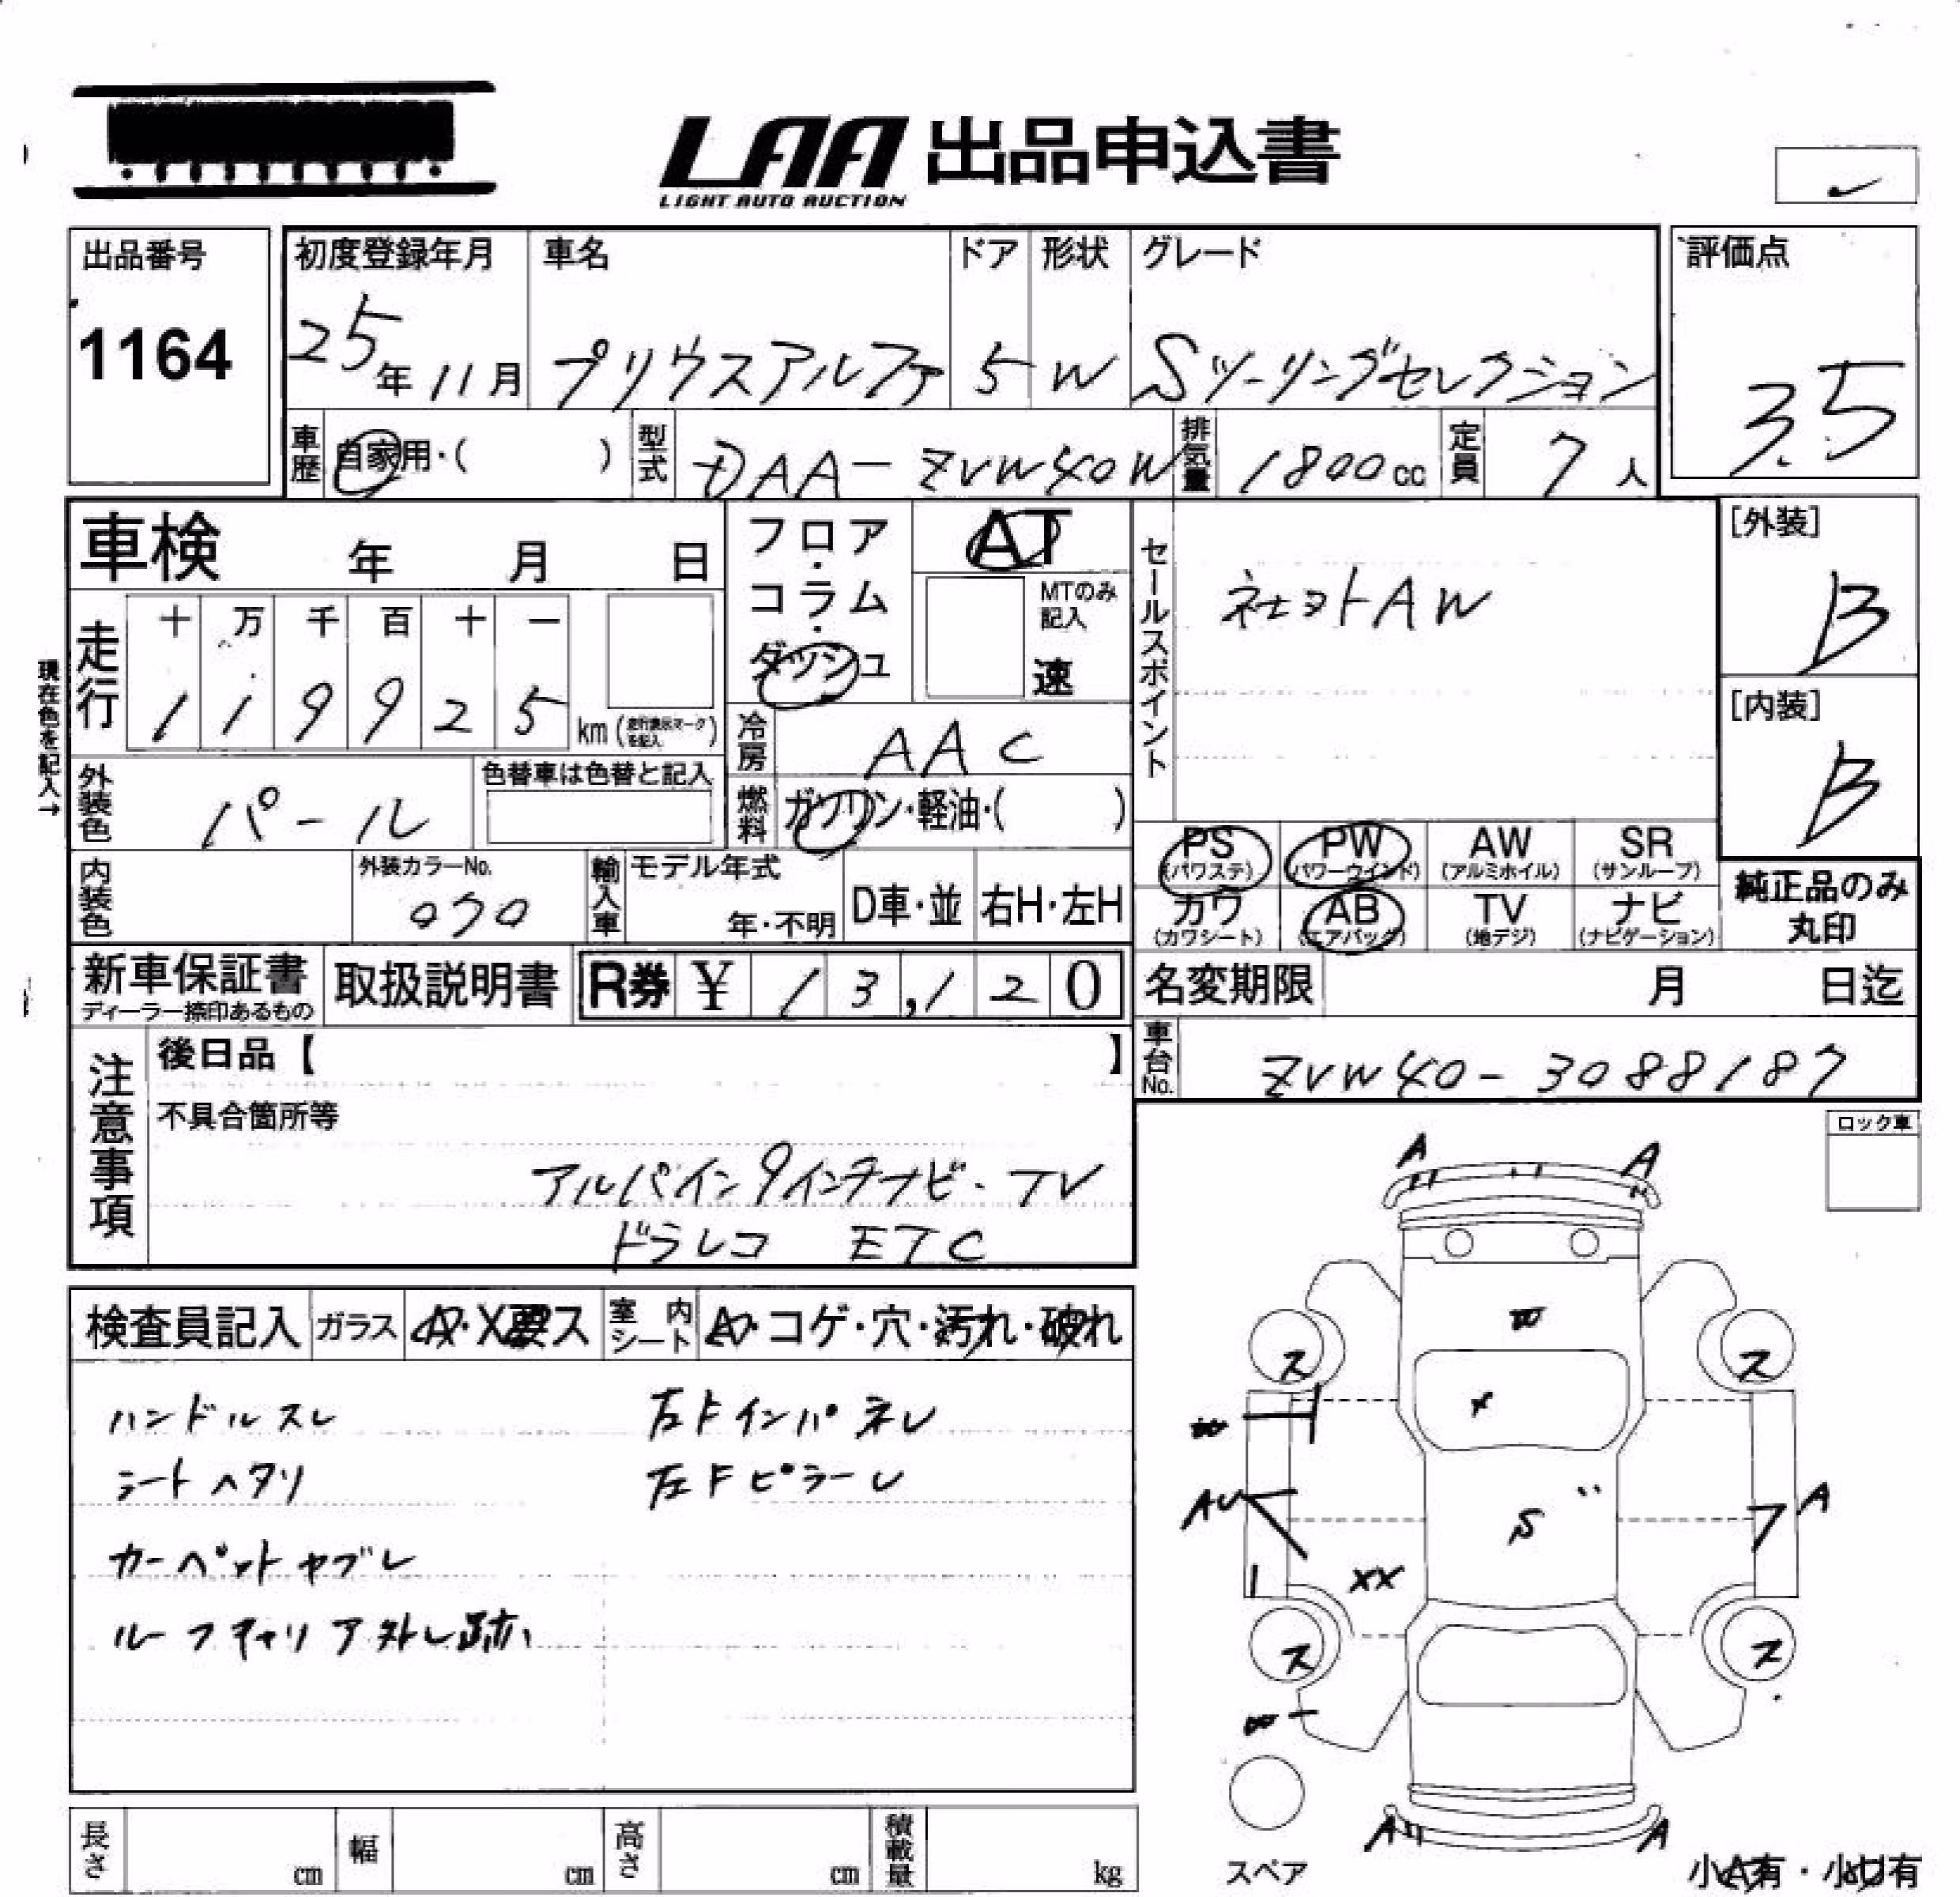 LAA 出品申込書
LIGHT AUTO AUCTION
出品番号
1164
初度登録年月 車名 ドア 形状 グレード
25年11月 プリウスアルファ 5 W Sツーリングセレクション
評価点
3.5
車歴 自家用・( ) 型式 DAA-ZVW40W 排気量 1800cc 定員 7人
車検 年 月 日
フロア・コラム・ダッシュ
AT
MTのみ記入
速
セールスポイント
社ヨトAW
[外装]
B
[内装]
B
現在色を記入→
走行
十 万 千 百 十 一
1 1 9 9 2 5 km (走行表示マークを記入)
冷房 AAC
外装色 パール
色替車は色替と記入
燃料 ガソリン・軽油・( )
内装色
外装カラーNo.
070
輸入車 モデル年式
年・不明 D車・並 右H・左H
PS (パワステ) PW (パワーウインド) AW (アルミホイル) SR (サンルーフ)
カワ (カワシート) AB (エアバッグ) TV (地デジ) ナビ (ナビゲーション)
純正品のみ
丸印
新車保証書
ディーラー捺印あるもの
取扱説明書
R券 ¥ 13,120
名変期限 月 日迄
車台No. ZVW40-3088187
注意事項
後日品【 】
不具合箇所等
アルパイン9インチナビ・TV
ドラレコ ETC
ロック車
検査員記入 ガラス A・X要ス 室内シート A・コゲ・穴・汚れ・破れ
ハンドルスレ 左Fインパネレ
シートヘタリ 左Fピラーレ
カーペットヤブレ
ルーフキャリア外し跡
A A
W
ス ス
X
W
AU A
S
XX
ス ス
W
A A
スペア
小A有・小U有
長さ cm 幅 cm 高さ cm 積載量 kg